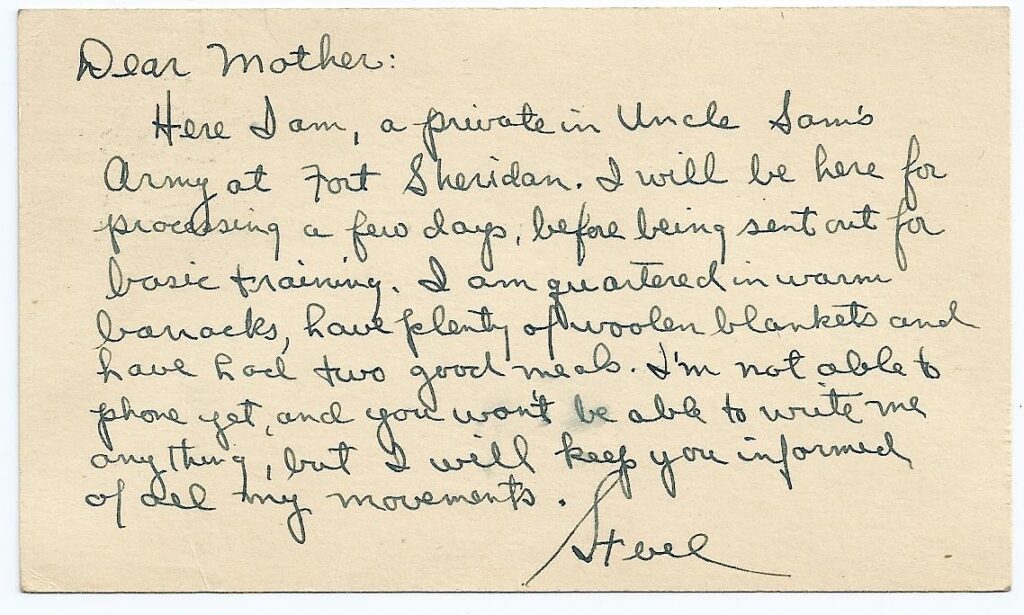 Dear Mother:
Here I am, a private in Uncle Sam's
Army at Fort Sheridan. I will be here for
processing a few days, before being sent out for
basic training. I am quartered in warm
barracks, have plenty of woolen blankets and
have had two good meals. I'm not able to
phone yet, and you won't be able to write me
anything, but I will keep you informed
of all my movements.
Steve